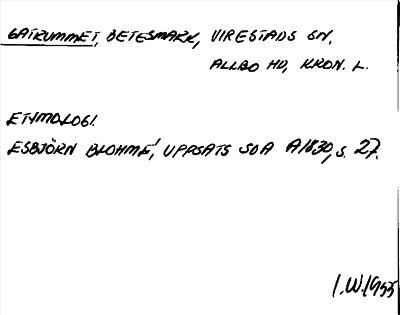 GATRUMMET, BETESMARK, VIRESTADS SN,
ALLBO HD, KRON. L.
ETYMOLOGI.
ESBJÖRN BLOHMÉ, UPPSATS SOA A1830, S. 27.
I.W.1955